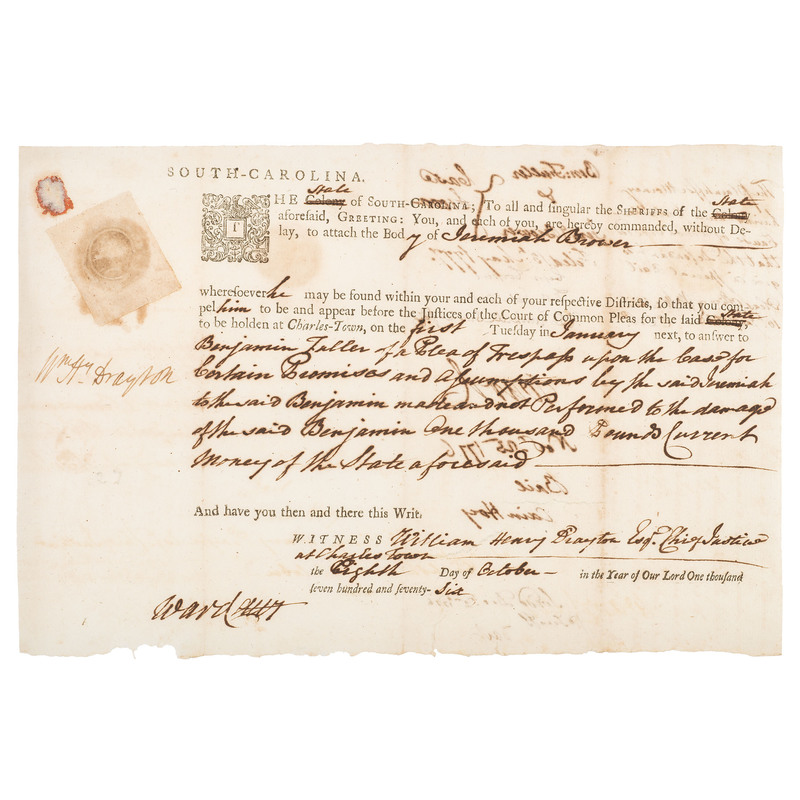 SOUTH-CAROLINA.
State State
THE Colony of SOUTH-CAROLINA; To all and singular the SHERIFFS of the Colony
aforesaid, GREETING: You, and each of you, are hereby commanded, without De-
lay, to attach the Body of Jeremiah Brower
wheresoever he may be found within your and each of your respective Districts, so that you com-
pel him to be and appear before the Justices of the Court of Common Pleas for the said Colony, State
to be holden at Charles-Town, on the first Tuesday in January next, to answer to
Benjamin Faller of a Plea of Trespass upon the Case for
Certain Promises and Assumptions by the said Jeremiah
to the said Benjamin made and not Performed to the damage
of the said Benjamin One thousand Pounds Current
Money of the State aforesaid
And have you then and there this Writ.
WITNESS William Henry Drayton Esqr. Chief Justice
at Charles Town
the Eighth Day of October in the Year of Our Lord One thousand
seven hundred and seventy-Six
Wm. Hy. Drayton
Ward
Ben: Fuller
Case
Bail
Cain Hoy